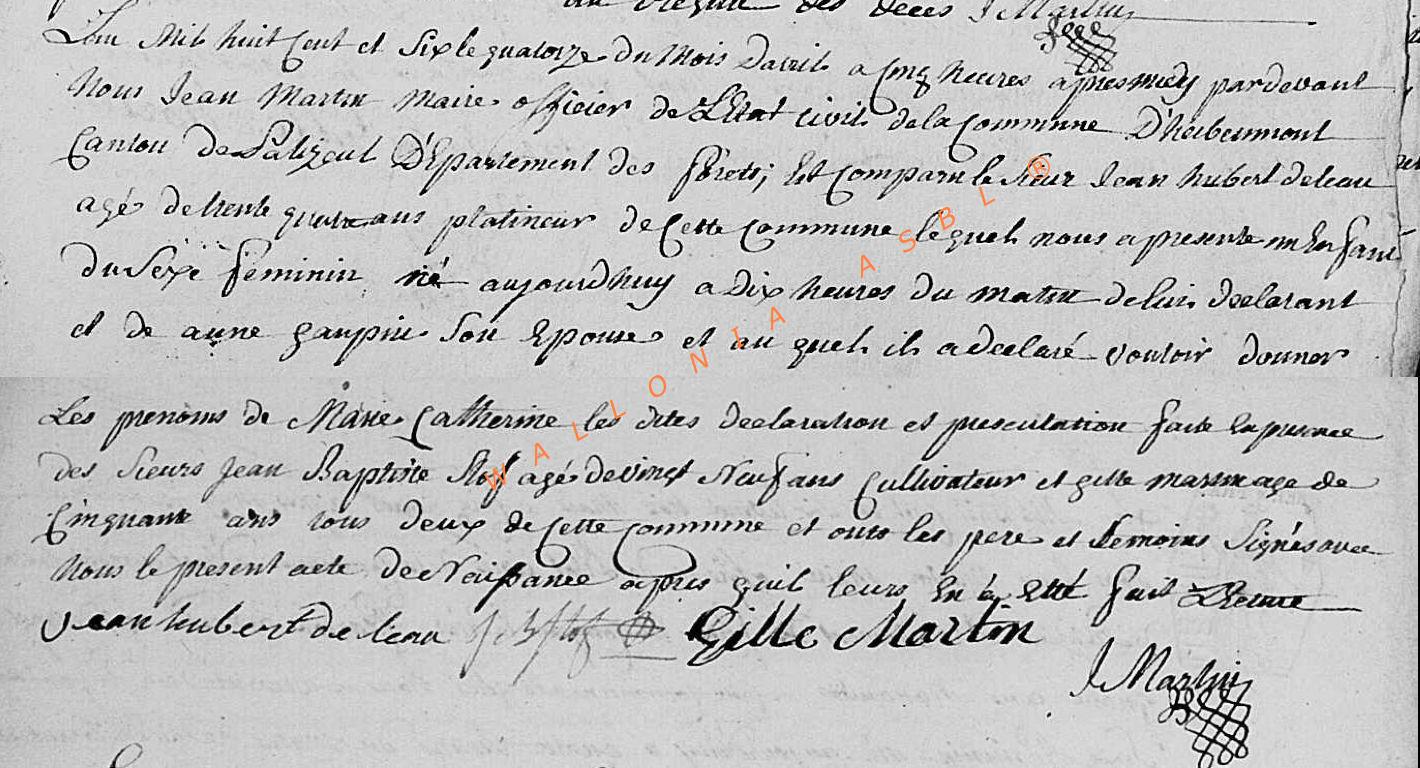 des deces J Martin
Lan Mil huit Cent et Six le quatorze du Mois Davril a cinq heures apres midy pardevant
Nous Jean Martin Maire officier de L'Etat civil de la Commune D'herbeumont
Canton de Palizeul D'Epartement des forets; Est Comparu le Sieur Jean hubert deleau
agé de trente quatre ans platineur de Cette Commune lequel nous a presente un Enfant
du Sexe feminin né aujourdhuy a Dix heures du matin de lui declarant
et de anne gaupin Son Epouse et au quel il a declaré vouloir donner
Les prenoms de Marie Catherine les dites declaration et presentation faite En presence
des Sieurs Jean Baptiste Stof agé de vingt Neuf ans Cultivateur et gille martin age de
Cinquante ans tous deux de Cette Commune et onts les pere et temoins Signés avec
Nous le present acte de Naissance apres quil leurs En a Etté fait Lecture
Jean hubert de leau J B Stof Gille Martin
J Martin
WALLONIA ASBL ®